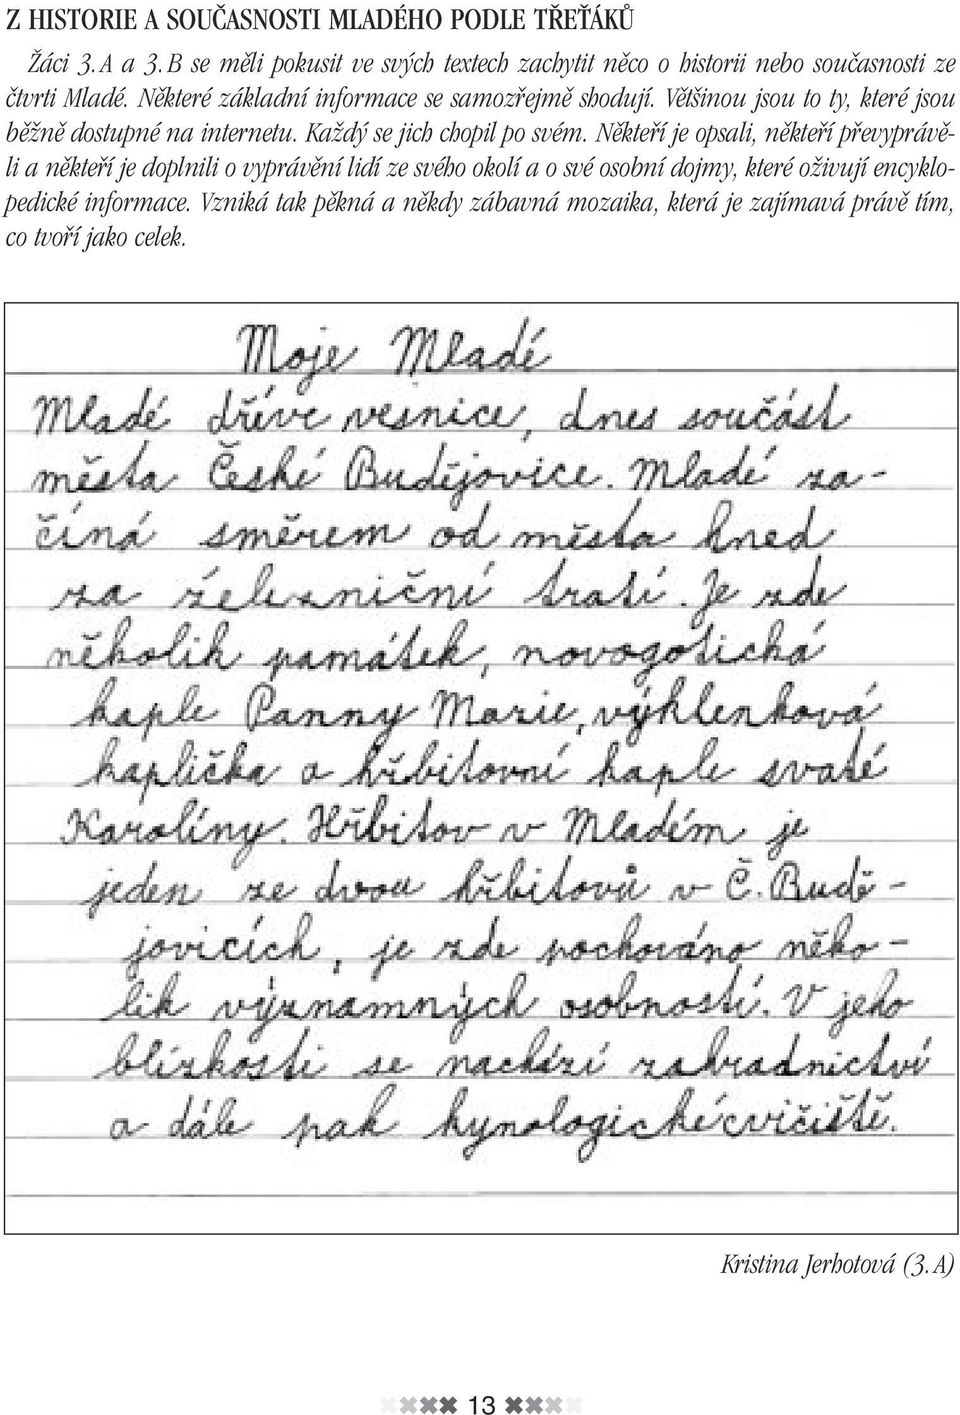 Z HISTORIE A SOUČASNOSTI MLADÉHO PODLE TŘEŤÁKŮ
Žáci 3. A a 3. B se měli pokusit ve svých textech zachytit něco o historii nebo současnosti ze
čtvrti Mladé. Některé základní informace se samozřejmě shodují. Většinou jsou to ty, které jsou
běžně dostupné na internetu. Každý se jich chopil po svém. Někteří je opsali, někteří převyprávě-
li a někteří je doplnili o vyprávění lidí ze svého okolí a o své osobní dojmy, které oživují encyklo-
pedické informace. Vzniká tak pěkná a někdy zábavná mozaika, která je zajímavá právě tím,
co tvoří jako celek.
Moje Mladé
Mladé dříve vesnice, dnes součást
města České Budějovice. Mladé za-
číná směrem od města hned
za železniční tratí. Je zde
několik památek, novogotická
kaple Panny Marie, výhlenková
kaplička a hřbitovní kaple svaté
Karolíny. Hřbitov v Mladém je
jeden ze dvou hřbitovů v Č. Budě-
jovicích, je zde pochováno něko-
lik významných osobností. V jeho
blízkosti se nachází zahradnictví
a dále pak kynologické cvičiště.
Kristina Jerhotová (3. A)
13